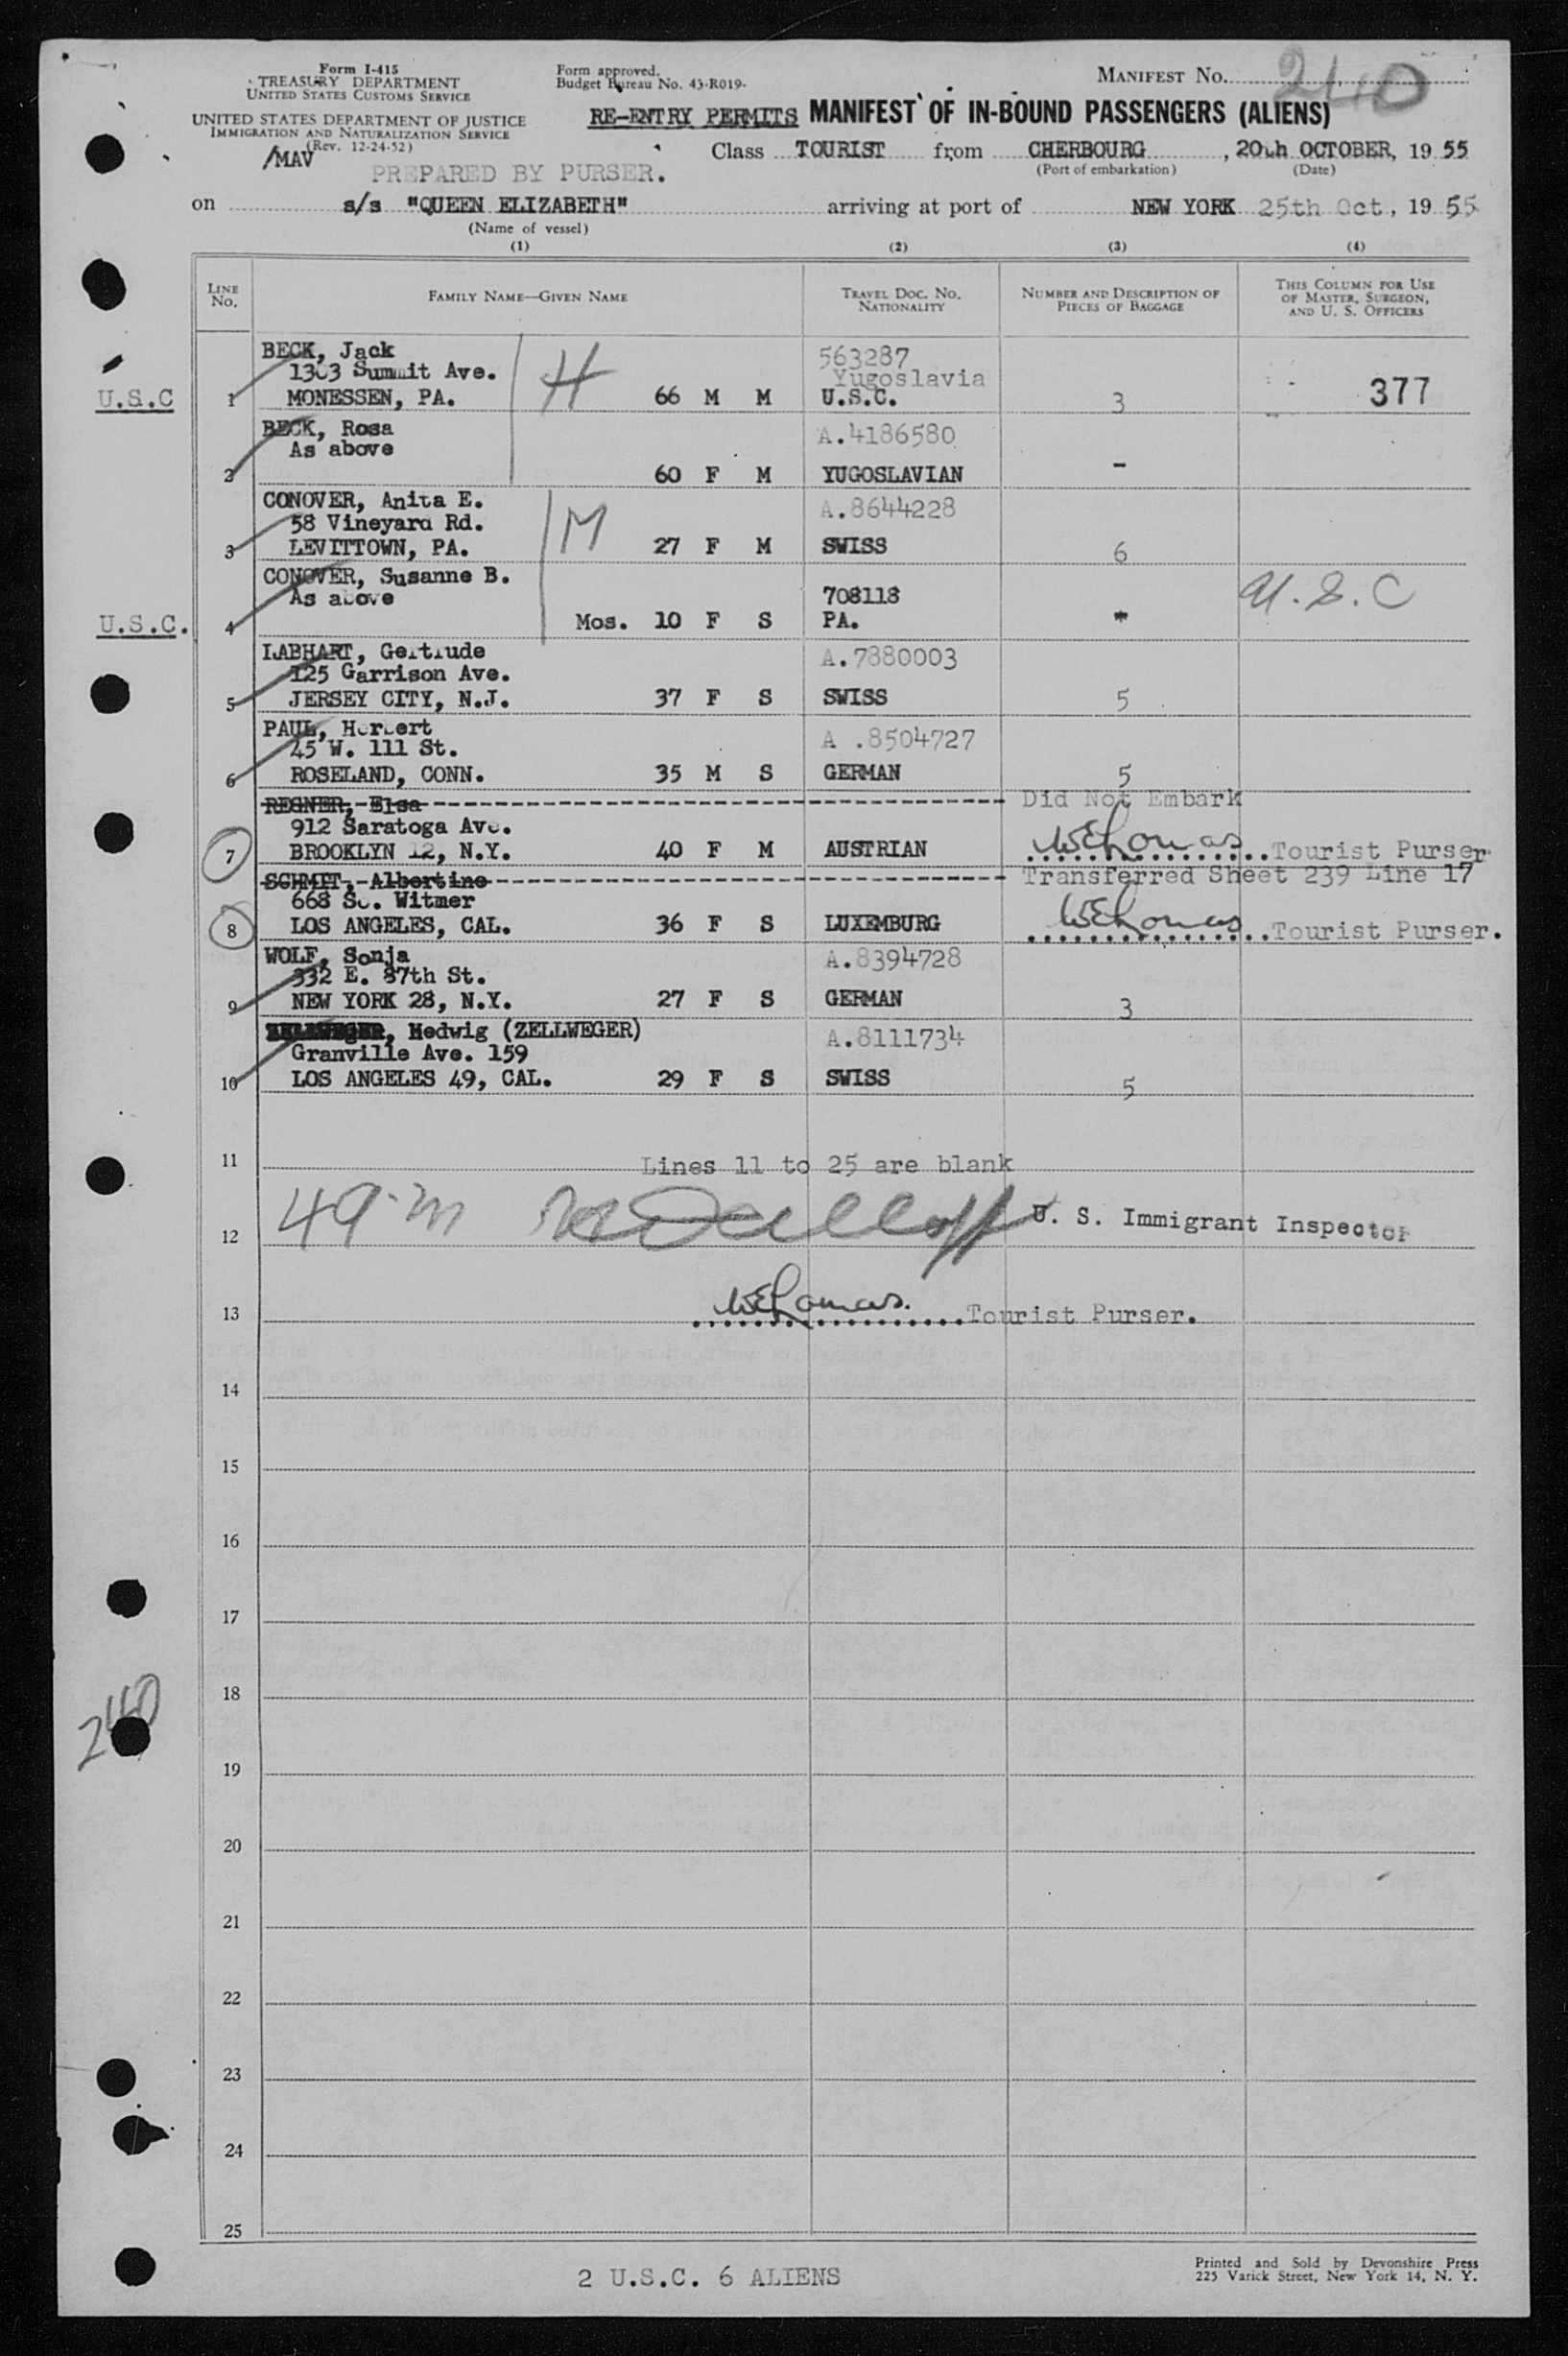 Form I-415
TREASURY DEPARTMENT
UNITED STATES CUSTOMS SERVICE
UNITED STATES DEPARTMENT OF JUSTICE
IMMIGRATION AND NATURALIZATION SERVICE
(Rev. 12-24-52)
/MAV
PREPARED BY PURSER.
Form approved.
Budget Bureau No. 43-R019-
MANIFEST No. 240
RE-ENTRY PERMITS MANIFEST OF IN-BOUND PASSENGERS (ALIENS)
Class TOURIST from CHERBOURG, 20th OCTOBER, 1955
(Port of embarkation) (Date)
on s/s "QUEEN ELIZABETH" arriving at port of NEW YORK 25th Oct, 1955
(Name of vessel)
(1) (2) (3) (4)
LINE No. FAMILY NAME—GIVEN NAME TRAVEL DOC. NO. NATIONALITY NUMBER AND DESCRIPTION OF PIECES OF BAGGAGE THIS COLUMN FOR USE OF MASTER, SURGEON, AND U. S. OFFICERS
BECK, Jack 563287
1303 Summit Ave. H Yugoslavia
U.S.C 1 MONESSEN, PA. 66 M M U.S.C. 3 377
BECK, Rosa A.4186580
As above
2 60 F M YUGOSLAVIAN -
CONOVER, Anita E. A.8644228
58 Vineyard Rd. M
3 LEVITTOWN, PA. 27 F M SWISS 6
CONOVER, Susanne B. U.S.C
As above 708118
U.S.C. 4 Mos. 10 F S PA.
LABHART, Gertrude A.7880003
125 Garrison Ave.
5 JERSEY CITY, N.J. 37 F S SWISS 5
PAUL, Herbert A .8504727
45 W. 111 St.
6 ROSELAND, CONN. 35 M S GERMAN 5
REGNER, Elsa Did Not Embark
912 Saratoga Ave.
7 BROOKLYN 12, N.Y. 40 F M AUSTRIAN WEThomas Tourist Purser
SCHMIT, Albertine Transferred Sheet 239 Line 17
668 So. Witmer
8 LOS ANGELES, CAL. 36 F S LUXEMBURG WEThomas Tourist Purser.
WOLF, Sonja A.8394728
332 E. 87th St.
9 NEW YORK 28, N.Y. 27 F S GERMAN 3
ZELLWEGER, Hedwig (ZELLWEGER) A.8111734
Granville Ave. 159
10 LOS ANGELES 49, CAL. 29 F S SWISS 5
11 Lines 11 to 25 are blank
12 49-M U. S. Immigrant Inspector
13 WEThomas. Tourist Purser.
14
15
16
17
18
240
19
20
21
22
23
24
25
2 U.S.C. 6 ALIENS
Printed and Sold by Devonshire Press
225 Varick Street, New York 14, N. Y.